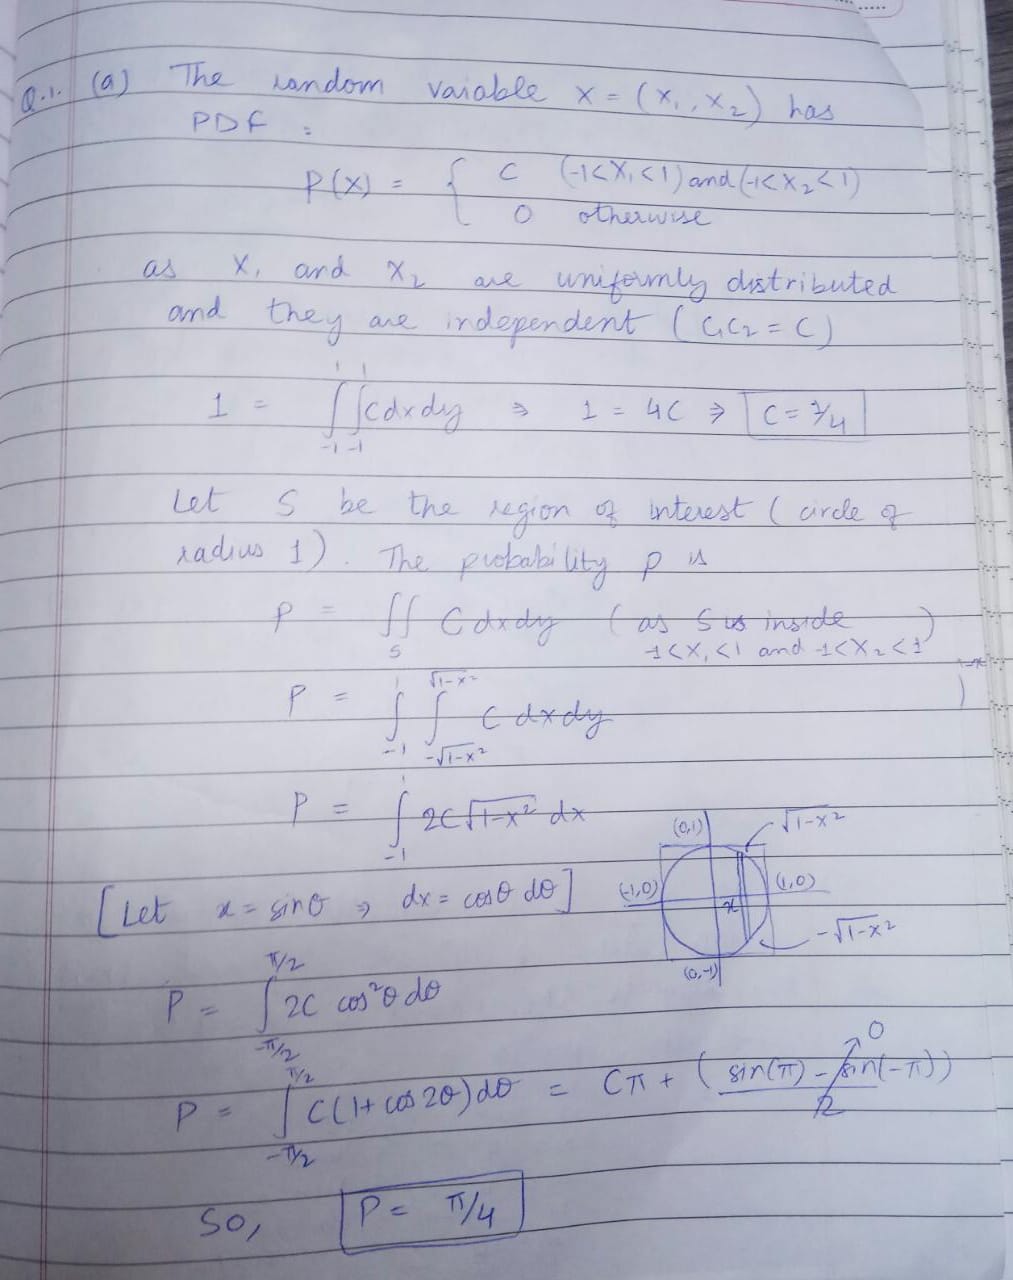 Q.1. (a) The random vaiable X = (X₁, X₂) has
PDF :
P(X) = { C (-1<X₁<1) and (-1<X₂<1)
0 otherwise
as X₁ and X₂ are uniformly distributed
and they are independent (C₁C₂ = C)
1 = ∫₋₁¹ ∫₋₁¹ C dx dy ⇒ 1 = 4C ⇒ C = 1/4
Let S be the region of interest (circle of
radius 1). The probability p is
P = ∬_S C dx dy (as S is inside
-1<X₁<1 and -1<X₂<1)
P = ∫₋₁¹ ∫_{-√1-x²}^{√1-x²} C dx dy
P = ∫₋₁¹ 2C √1-x² dx
(0,1) √1-x²
[Let x = sinθ ⇒ dx = cosθ dθ] (-1,0) x (1,0)
-√1-x²
(0,-1)
P = ∫_{-π/2}^{π/2} 2C cos²θ dθ
P = ∫_{-π/2}^{π/2} C(1+cos2θ)dθ = Cπ + ((sin(π) - sin(-π))/2) 0
So, P = π/4